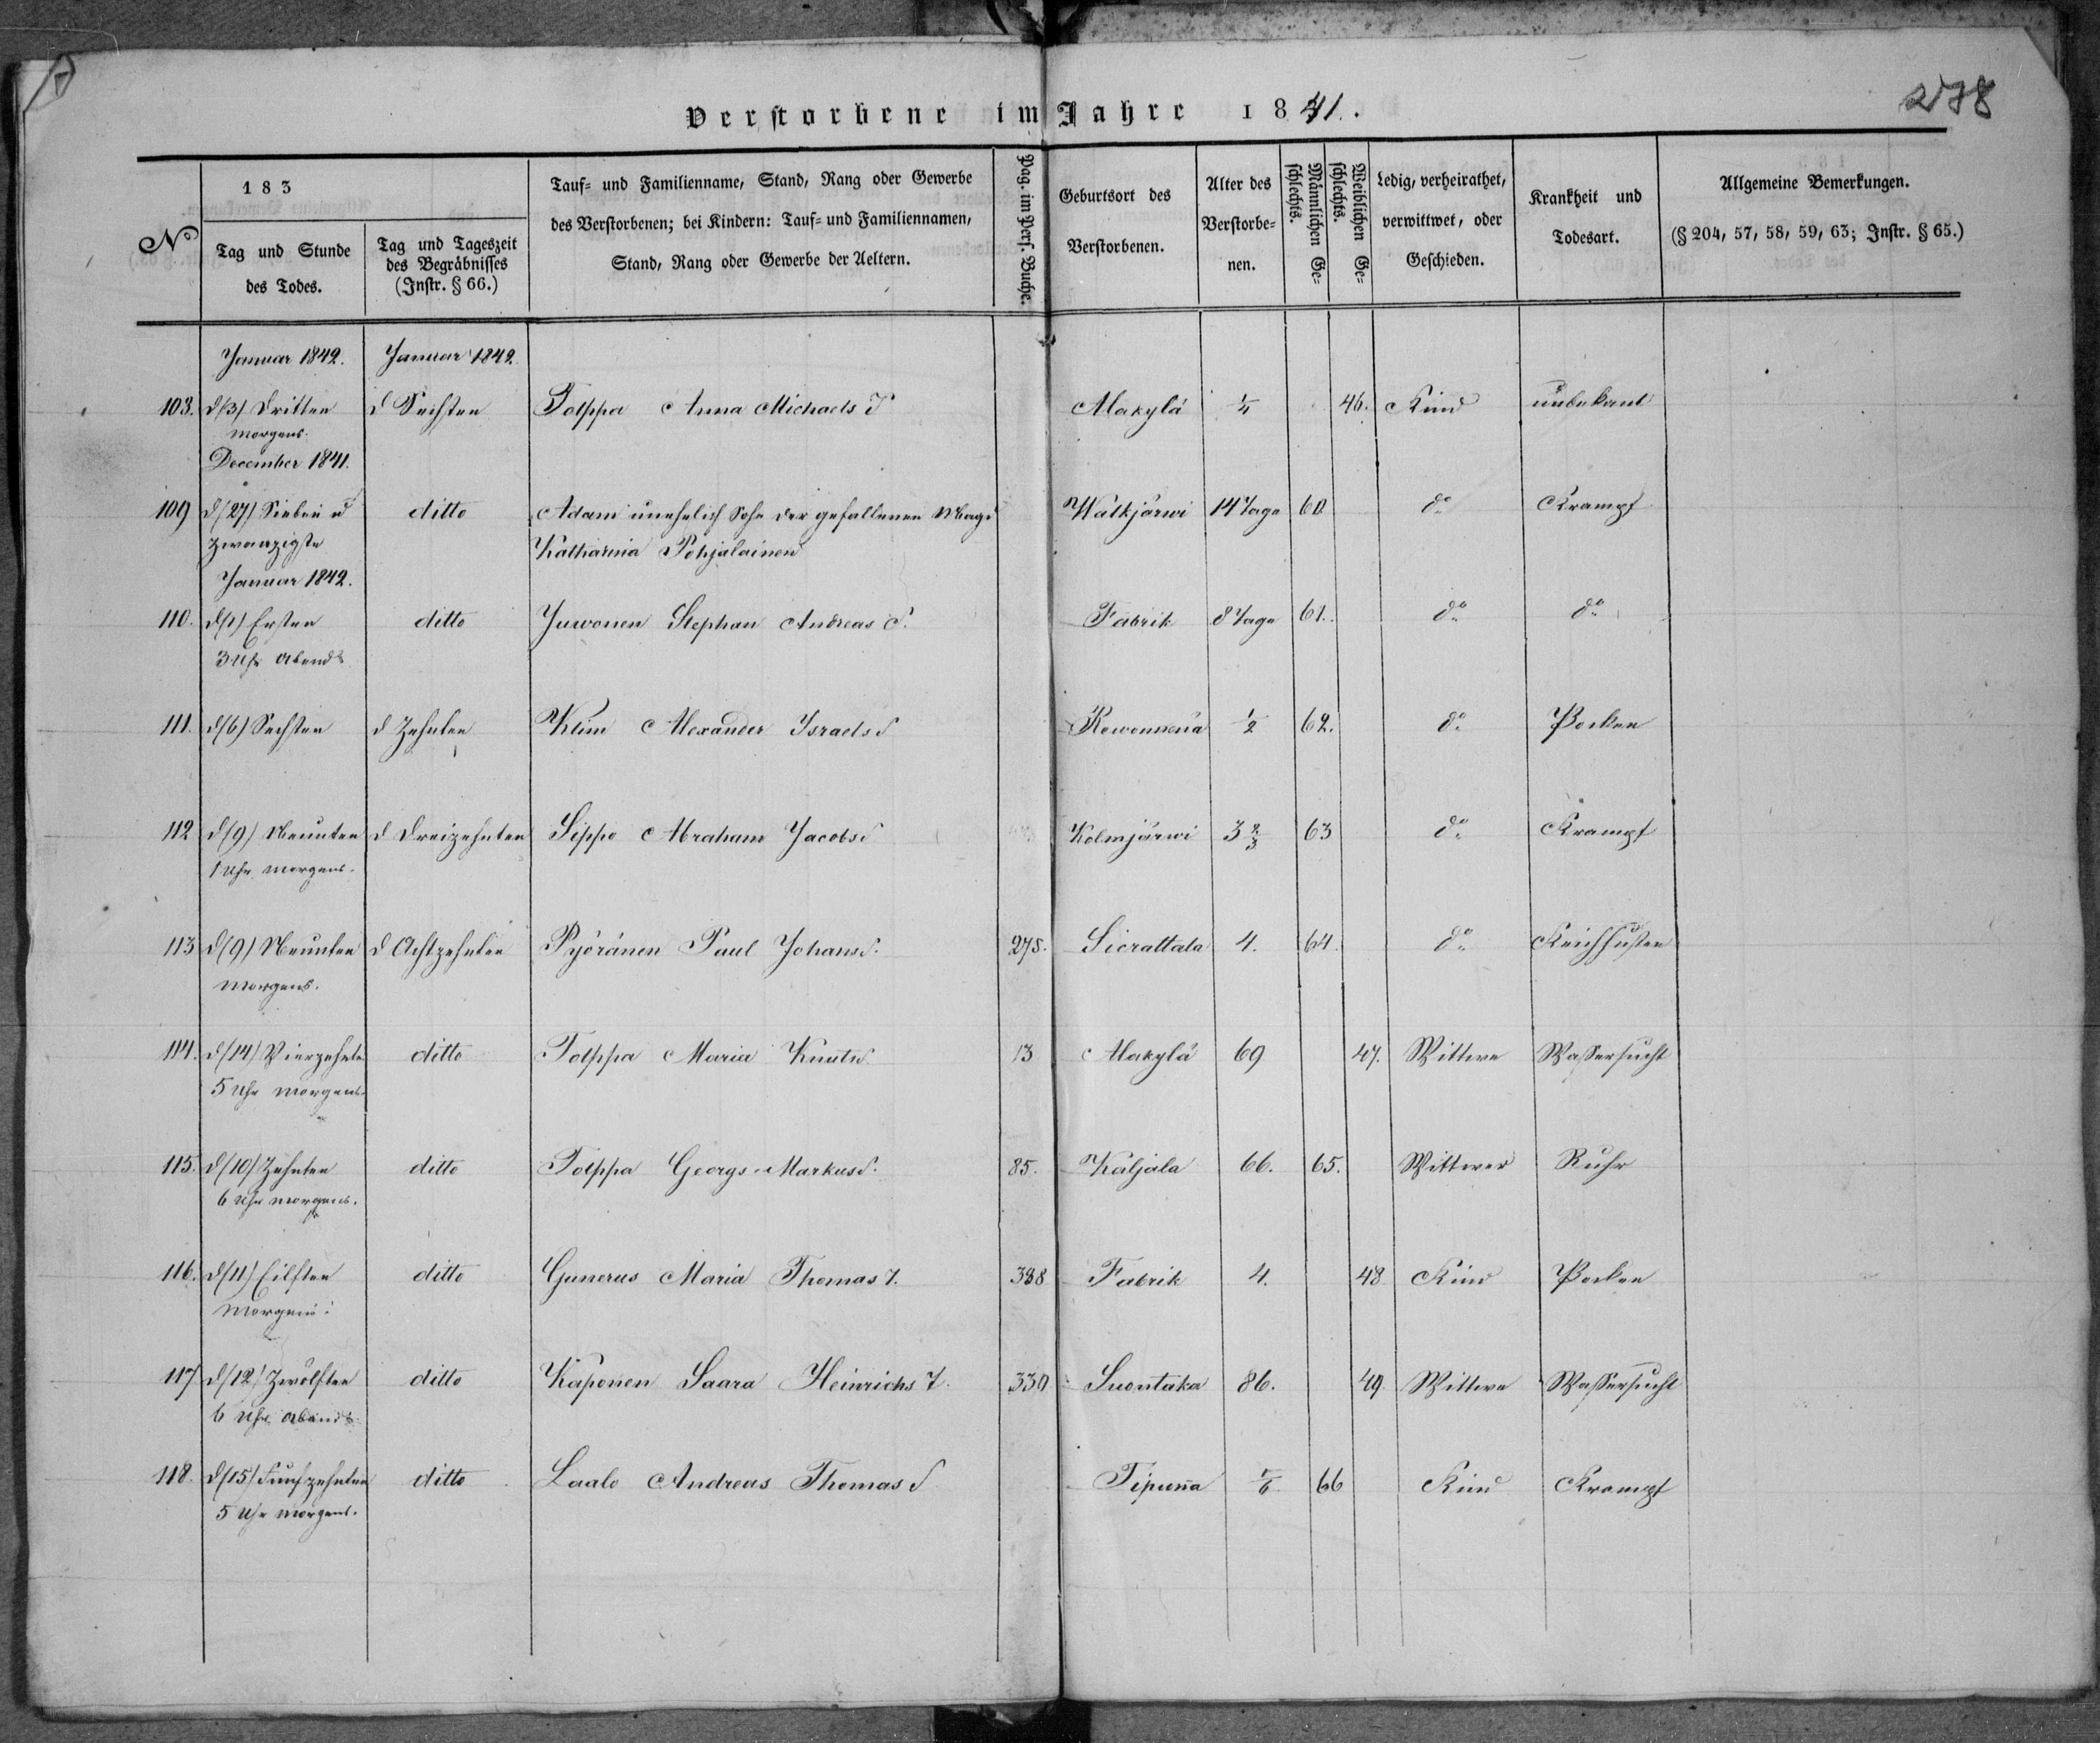 278
Verstorbene im Jahre 1841.
No
183
Tag und Stunde des Todes.
Tag und Tageszeit des Begräbnisses (Instr. § 66.)
Tauf- und Familienname, Stand, Rang oder Gewerbe
des Verstorbenen; bei Kindern: Tauf- und Familiennamen,
Stand, Rang oder Gewerbe der Aeltern.
Pag. im Pers. Buche.
Geburtsort des Verstorbenen.
Alter des Verstorbe-nen.
Männlichen Ge-schlechts.
Weiblichen Ge-schlechts.
Ledig, verheirathet, verwittwet, oder Geschieden.
Krankheit und Todesart.
Allgemeine Bemerkungen.
(§ 204, 57, 58, 59, 63; Instr. § 65.)
Januar 1842. Januar 1842.
103. d (3) Dritten d Sechsten Tolppa Anna Michaels T Alakylä 1/4 46. Kind unbekant
morgens.
December 1841.
109 d (27) Sieben u ditto Adam unehelich Sohn der gefallenen Magd Walkjärwi 14 Tage 60 do Krampf
zwanzigste Katharina Pohjalainen
Januar 1842.
110. d (1) Ersten ditto Juwonen Stephan Andreas S. Fabrik 8 Tage 61. do do
3 Uhr abends
111. d (6) Sechsten d Zehnten Klim Alexander Israels S 1/2 62. do Pocken
112 d (9) Neunten d Dreizehnten Sippo Abraham Jacobs S Kolmjärwi 3 2/3 63 do Krampf
1 Uhr morgens.
113 d (9) Neunten d Achtzehnten Pyöränen Paul Johans S. 275. Sierattala 4. 64. do Keichhusten
morgens.
114. d (14) Vierzehnte ditto Tolppa Maria Knuts 13 Alakylä 69 47. Wittwe Wassersucht
5 Uhr morgens.
115. d (10) Zehnten ditto Tolppa Georgs Markus S. 85. Käljälä 66. 65. Wittwer Ruhr
6 Uhr morgens.
116. d (11) Eilften ditto Gunerus Maria Thomas T. 338 Fabrik 4. 48 Kind Pocken
Morgens.
117 d (12) Zwölften ditto Käponen Saara Heinrichs T. 330 Suontaka 86. 49. Wittwe Wassersucht
6 Uhr abends
118. d (15) Funfzehnten ditto Laalo Andreas Thomas S 66 Kind Krampf
5 Uhr morgens.